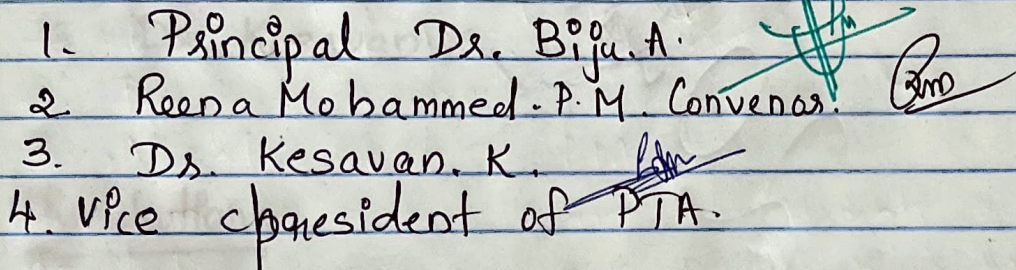 1. Principal Dr. Biju. A.
2 Reena Mohammed. P. M. Convenor.
3. Dr. Kesavan. K.
4. Vice president of PTA.